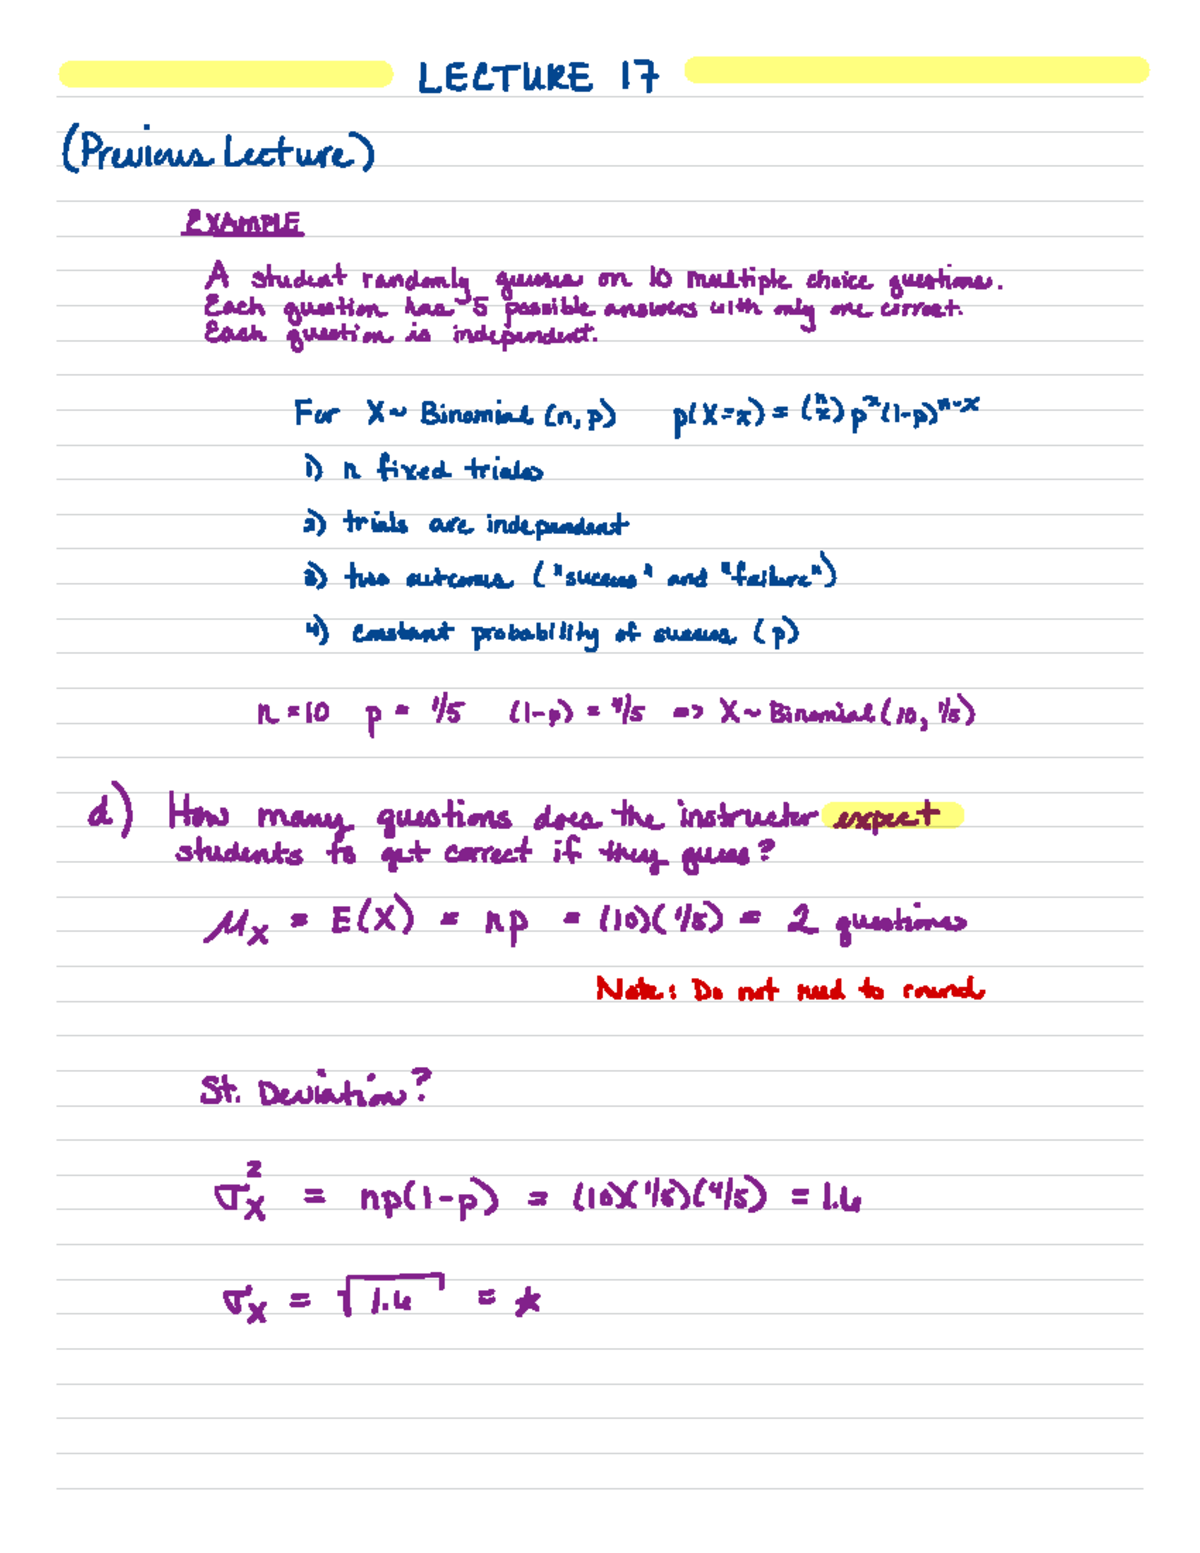 LECTURE 17
(Previous Lecture)
EXAMPLE
A student randomly guesses on 10 multiple choice questions.
Each question has 5 possible answers with only one correct.
Each question is independent.
For X~ Binomial (n, p) p(X=x) = (n x) p^x (1-p)^n-x
1) n fixed trials
2) trials are independent
3) two outcomes ("success" and "failure")
4) constant probability of success (p)
n = 10 p = 1/5 (1-p) = 4/5 => X ~ Binomial (10, 1/5)
d) How many questions does the instructor expect
students to get correct if they guess?
μ_X = E(X) = np = (10)(1/5) = 2 questions
Note: Do not need to round
St. Deviation?
σ_X^2 = np(1-p) = (10)(1/5)(4/5) = 1.6
σ_X = √1.6 = *